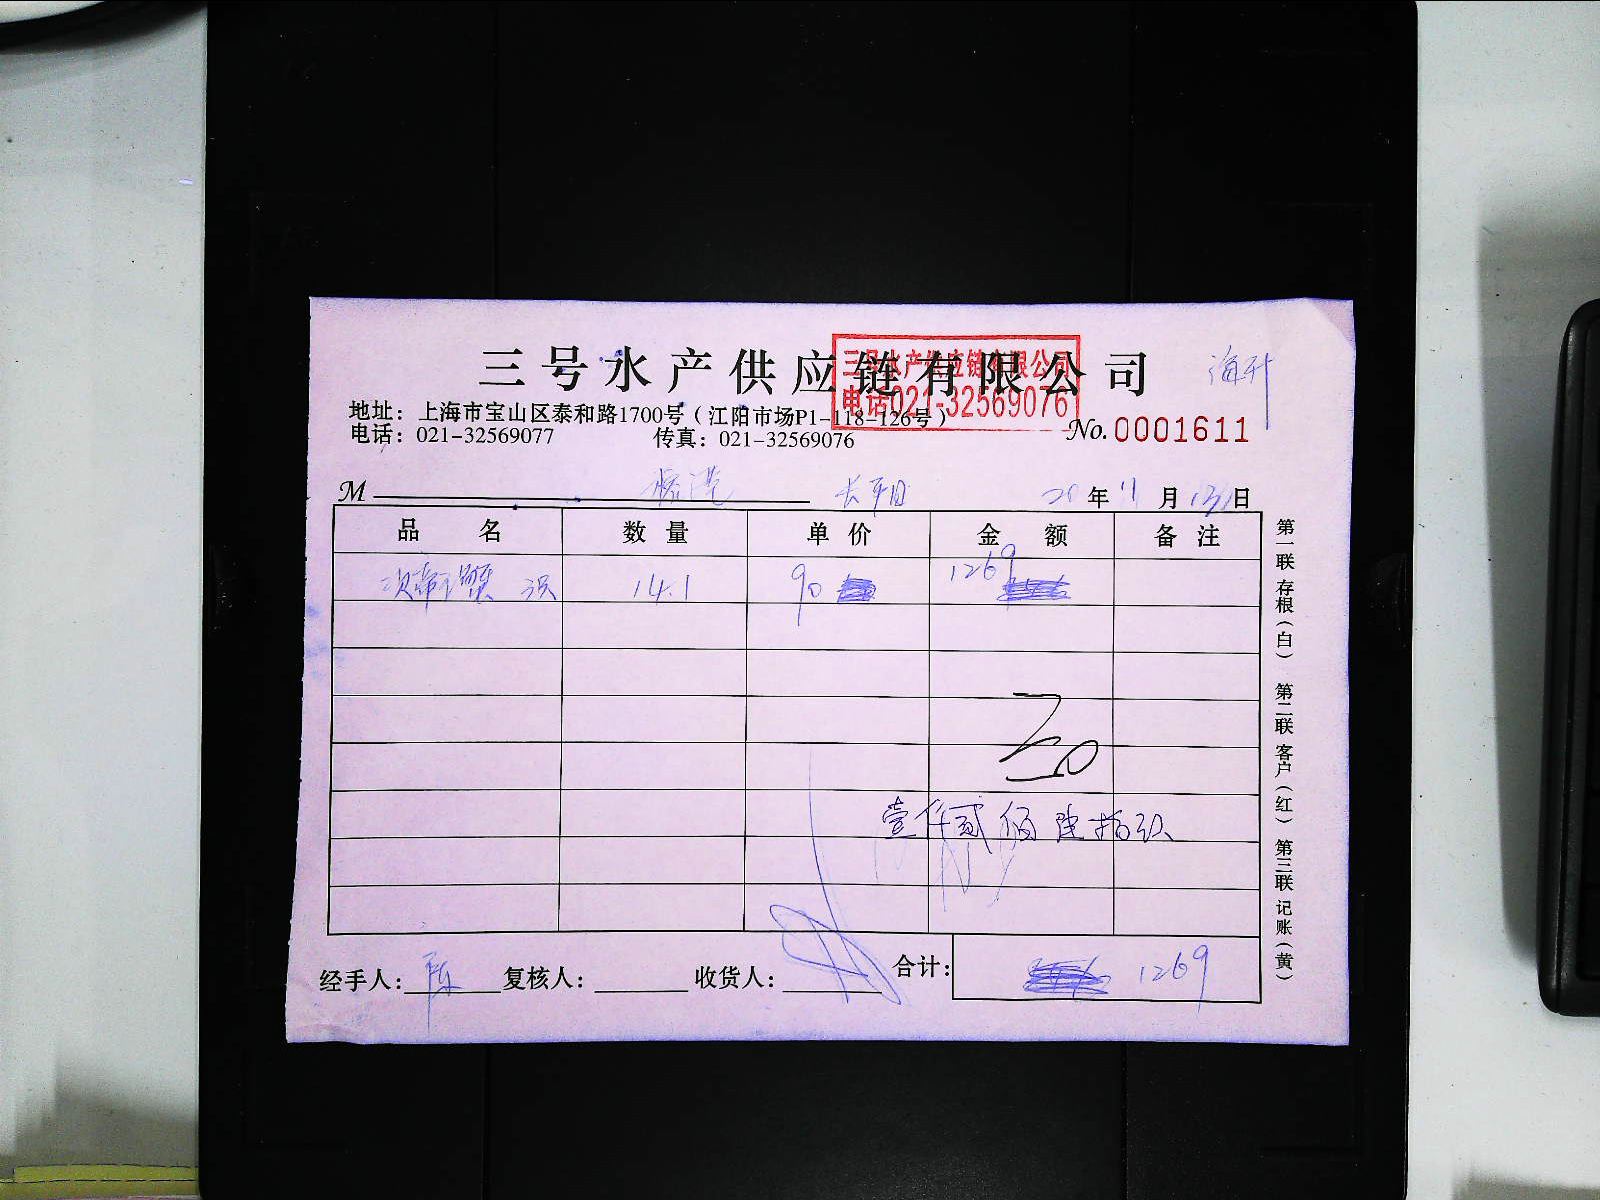 三号水产供应链有限公司
三号水产供应链有限公司
电话021-32569076
海升
地址：上海市宝山区泰和路1700号（江阳市场P1-118-126号）
电话：021-32569077 传真：021-32569076
No.0001611
M 长阳 20年11月13日
品名 数量 单价 金额 备注
14.1 90 1269
壹仟贰佰陆拾玖
经手人：陈 复核人： 收货人： 合计： 1269
第一联 存根（白） 第二联 客户（红） 第三联 记账（黄）